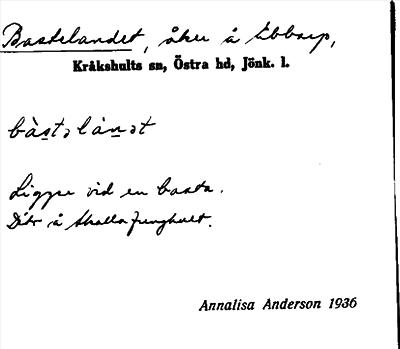 Bastelandet, åker å Ebbarp,
Kråkshults sn, Östra hd, Jönk. l.
bàstəlànət
Ligger vid en basta.
Dito å
Annalisa Anderson 1936